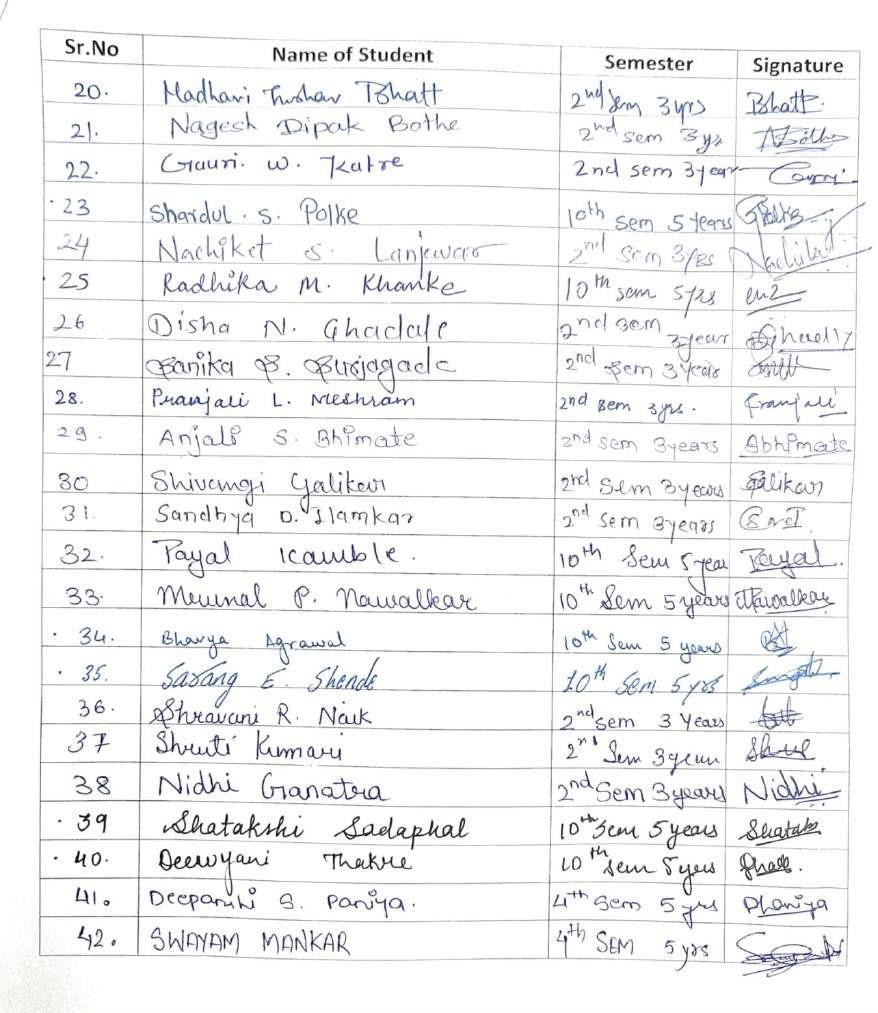 Sr.No Name of Student Semester Signature
20. Madhavi Tushar Bhatt 2nd Sem 3yrs Bhatt.
21. Nagesh Dipak Bothe 2nd sem 3yr
22. Gauri. W. Katre 2nd sem 3year
23 Shardul. S. Polke 10th sem 5 years
24 Nachiket S. Lanjewar 2nd Sem 3yrs Nachiket
25 Radhika M. Khanke 10th sem 5yrs
26 Disha N. Ghadale 2nd sem 3year
27 Sanika S. Surjagade 2nd Sem 3 Years
28. Pranjali L. Meshram 2nd sem 3yrs. Pranjali
29. Anjali S. Bhimate 2nd sem 3years Abhimate
30 Shivangi Galikar 2nd Sem 3years Galikar
31. Sandhya D. Ilamkar 2nd sem 3years
32. Payal Kamble. 10th Sem 5year Payal.
33. Mrunal P. Nawalkar 10th Sem 5years Nawalkar
34. Bhavya Agrawal 10th Sem 5 years
35. Sarang E. Shende 10th Sem 5yrs
36. Shravani R. Naik 2nd sem 3 Years
37 Shruti Kumari 2nd Sem 3year
38 Nidhi Ganatra 2nd Sem 3years Nidhi
39 Shatakshi Sadaphal 10th Sem 5years
40. Dewyani Thakre 10th sem 5yers
41. S. Paniya. 4th Sem 5yrs
42. SWAYAM MANKAR 4th SEM 5yrs